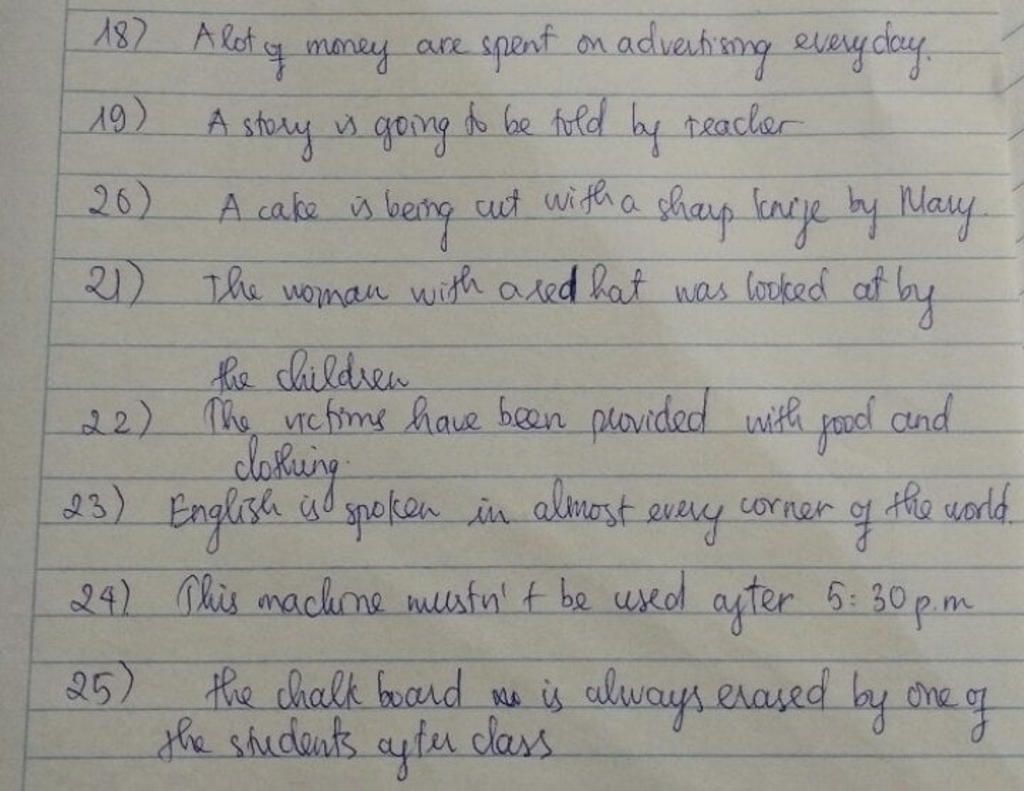 18) A lot of money are spent on advertising everyday.
19) A story is going to be told by teacher
20) A cake is being cut with a sharp knife by Mary.
21) The woman with a red hat was looked at by
the children
22) The victims have been provided with food and
clothing.
23) English is spoken in almost every corner of the world.
24) This machine mustn't be used after 5:30 p.m
25) the chalk board is always erased by one of
the students after class